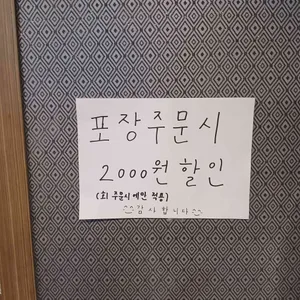 포장주문시
2000원 할인
(회 주문시에만 적용)
감사합니다